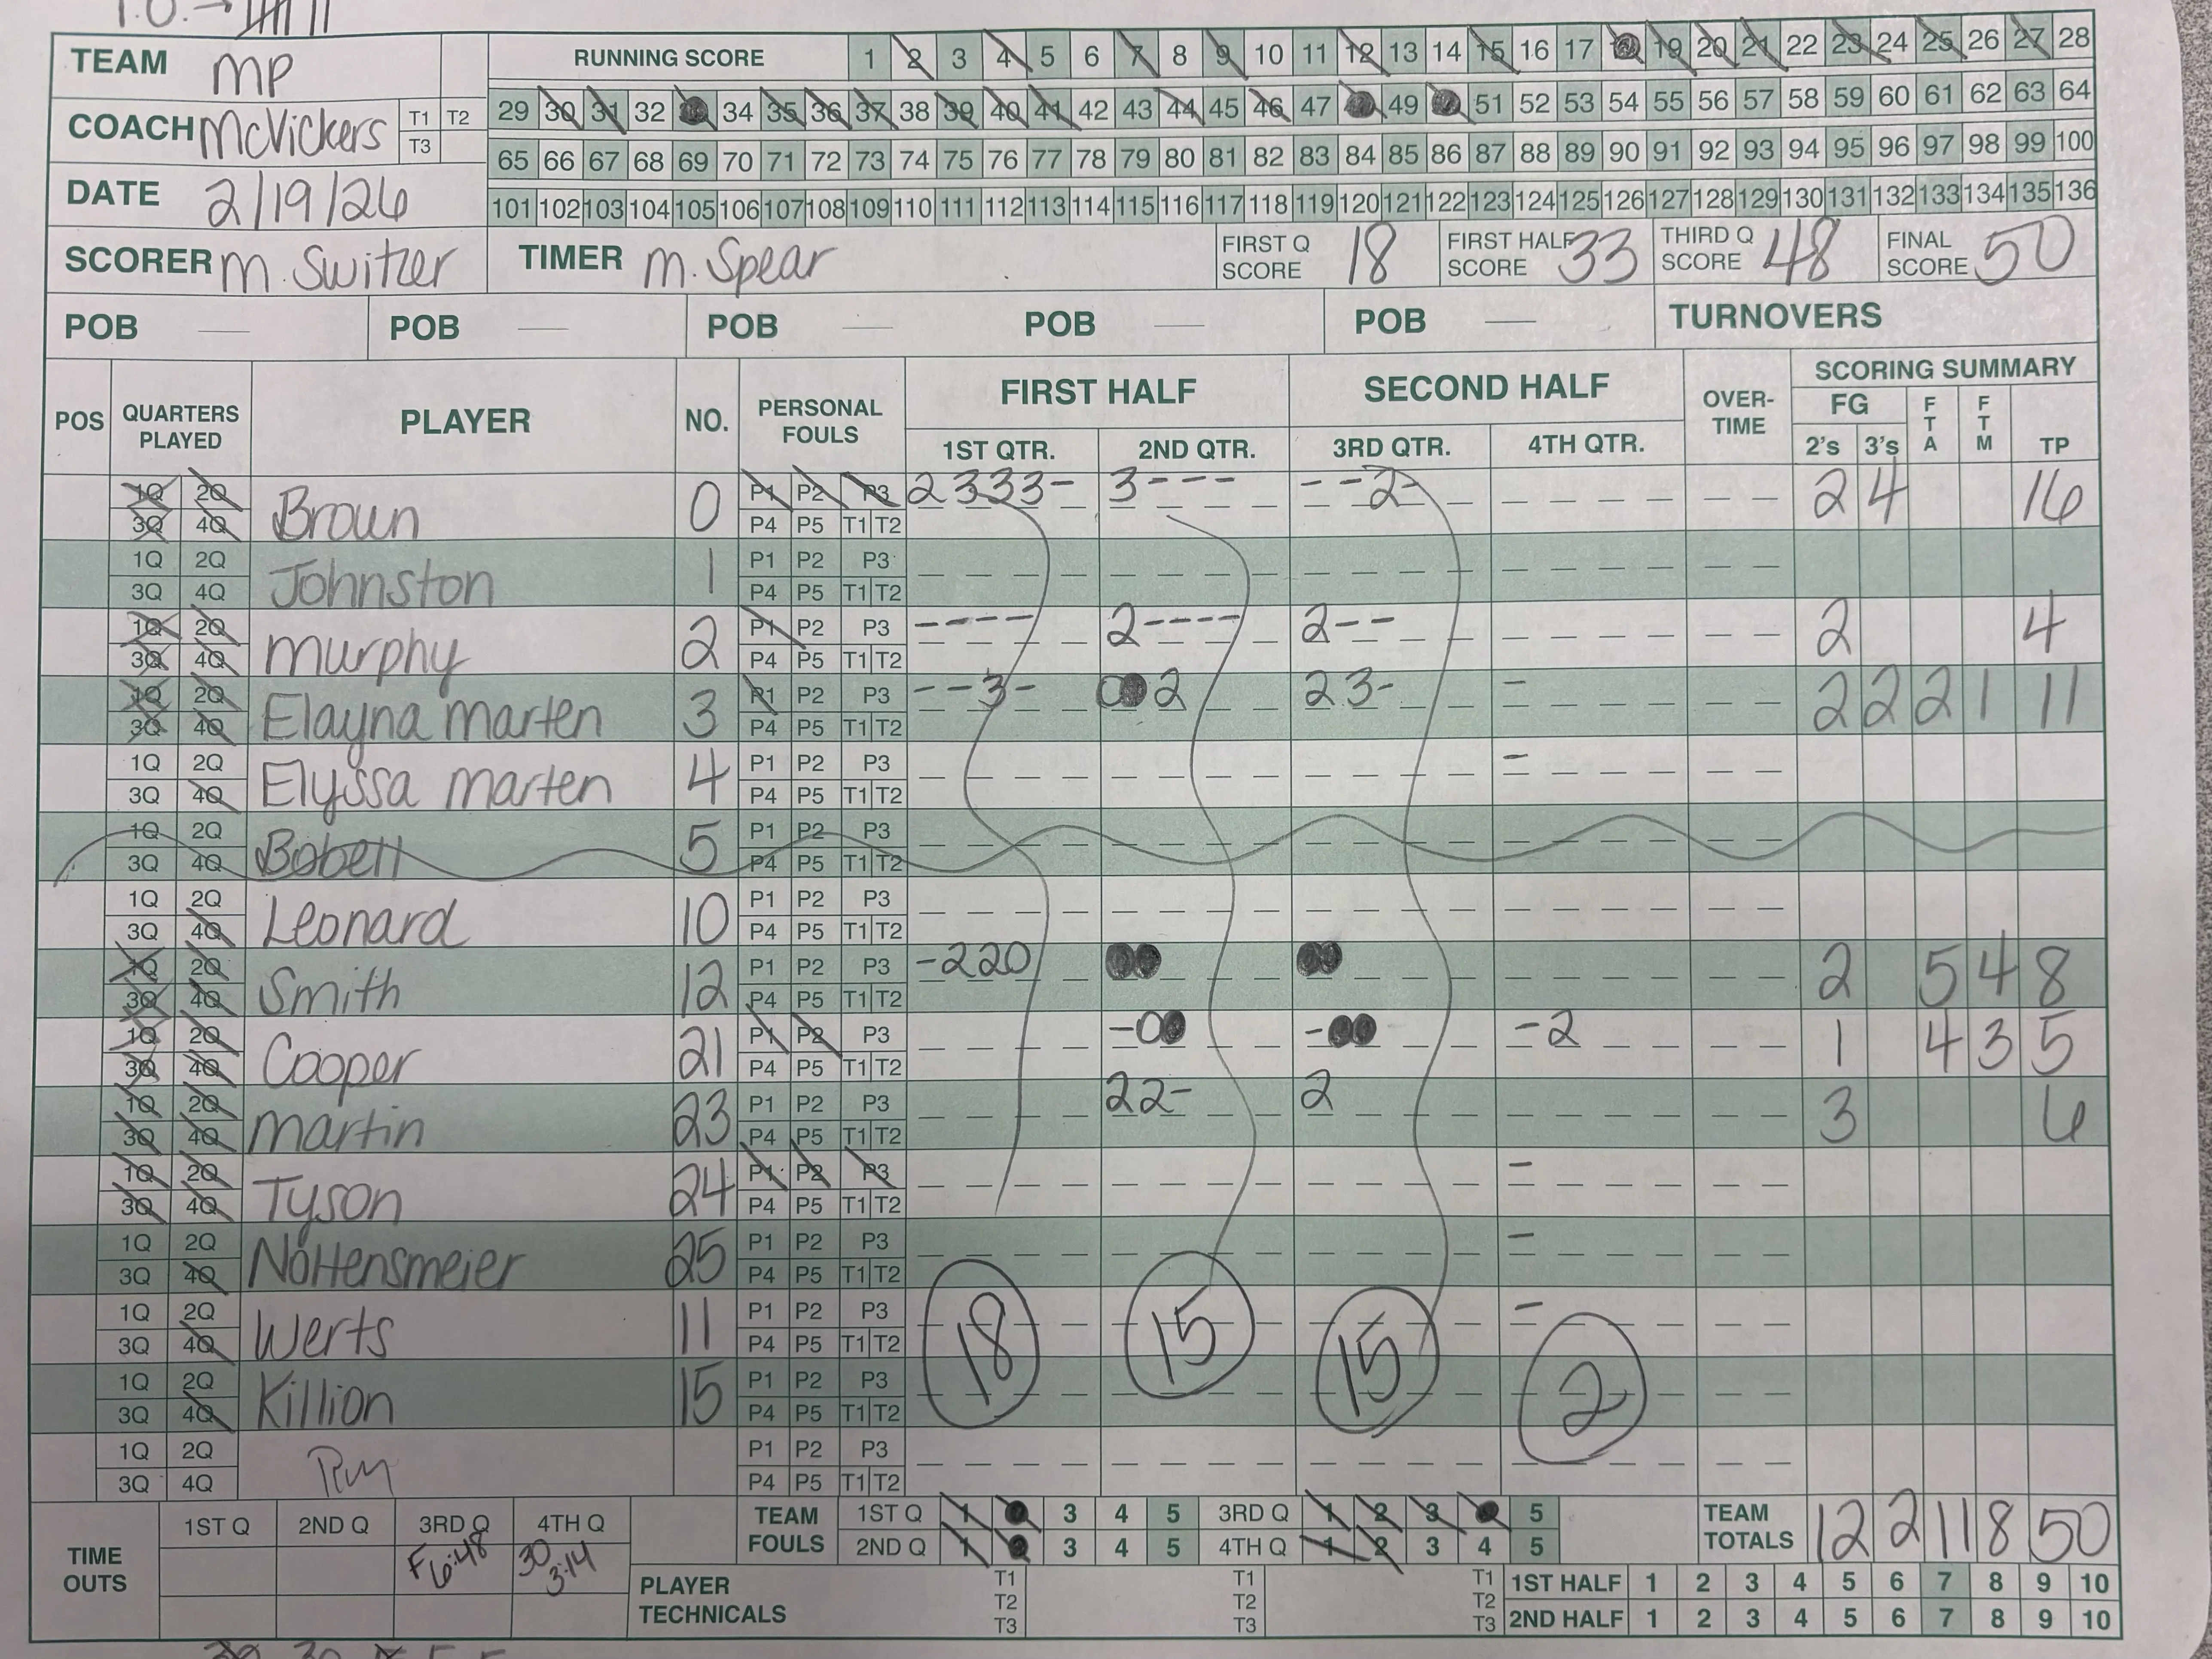 T.O. →
TEAM MP
RUNNING SCORE 1 2 3 4 5 6 7 8 9 10 11 12 13 14 15 16 17 18 19 20 21 22 23 24 25 26 27 28
29 30 31 32 34 35 36 37 38 39 40 41 42 43 44 45 46 47 49 51 52 53 54 55 56 57 58 59 60 61 62 63 64
COACH McVickers T1 T2 T3
65 66 67 68 69 70 71 72 73 74 75 76 77 78 79 80 81 82 83 84 85 86 87 88 89 90 91 92 93 94 95 96 97 98 99 100
DATE 2/19/26
101 102 103 104 105 106 107 108 109 110 111 112 113 114 115 116 117 118 119 120 121 122 123 124 125 126 127 128 129 130 131 132 133 134 135 136
SCORER M. Switzer TIMER M. Spear FIRST Q SCORE 18 FIRST HALF SCORE 33 THIRD Q SCORE 48 FINAL SCORE 50
POB — POB — POB — POB — POB — TURNOVERS
POS QUARTERS PLAYED PLAYER NO. PERSONAL FOULS FIRST HALF SECOND HALF OVER-TIME SCORING SUMMARY
1ST QTR. 2ND QTR. 3RD QTR. 4TH QTR. FG 2's 3's FTA FTM TP
1Q 2Q Brown 0 P1 P2 P3 2333- 3--- --2- 2 4 16
3Q 4Q P4 P5 T1 T2
1Q 2Q Johnston 1 P1 P2 P3
3Q 4Q P4 P5 T1 T2
1Q 2Q Murphy 2 P1 P2 P3 ---- 2---- 2-- 2 4
3Q 4Q P4 P5 T1 T2
1Q 2Q Elayna Marten 3 P1 P2 P3 --3- 0● 2 23- - 2 2 2 1 11
3Q 4Q P4 P5 T1 T2
1Q 2Q Elyssa Marten 4 P1 P2 P3 -
3Q 4Q P4 P5 T1 T2
1Q 2Q Bobell 5 P1 P2 P3
3Q 4Q P4 P5 T1 T2
1Q 2Q Leonard 10 P1 P2 P3
3Q 4Q P4 P5 T1 T2
1Q 2Q Smith 12 P1 P2 P3 -220 ●● ●● 2 5 4 8
3Q 4Q P4 P5 T1 T2
1Q 2Q Cooper 21 P1 P2 P3 -0● -●● -2 1 4 3 5
3Q 4Q P4 P5 T1 T2
1Q 2Q Martin 23 P1 P2 P3 22- 2 3 6
3Q 4Q P4 P5 T1 T2
1Q 2Q Tyson 24 P1 P2 P3 -
3Q 4Q P4 P5 T1 T2
1Q 2Q Nottensmeier 25 P1 P2 P3 -
3Q 4Q P4 P5 T1 T2
1Q 2Q Werts 11 P1 P2 P3 -
3Q 4Q P4 P5 T1 T2 18 15 15 2
1Q 2Q Killion 15 P1 P2 P3
3Q 4Q P4 P5 T1 T2
1Q 2Q P1 P2 P3
3Q 4Q P4 P5 T1 T2
TIME OUTS 1ST Q 2ND Q 3RD Q 4TH Q
F 6:48 30 3:14
TEAM FOULS 1ST Q 1 3 4 5 3RD Q 1 2 3 5
2ND Q 1 3 4 5 4TH Q 1 2 3 4 5
TEAM TOTALS 12 2 11 8 50
PLAYER TECHNICALS T1 T2 T3 T1 T2 T3 T1 T2 T3
1ST HALF 1 2 3 4 5 6 7 8 9 10
2ND HALF 1 2 3 4 5 6 7 8 9 10